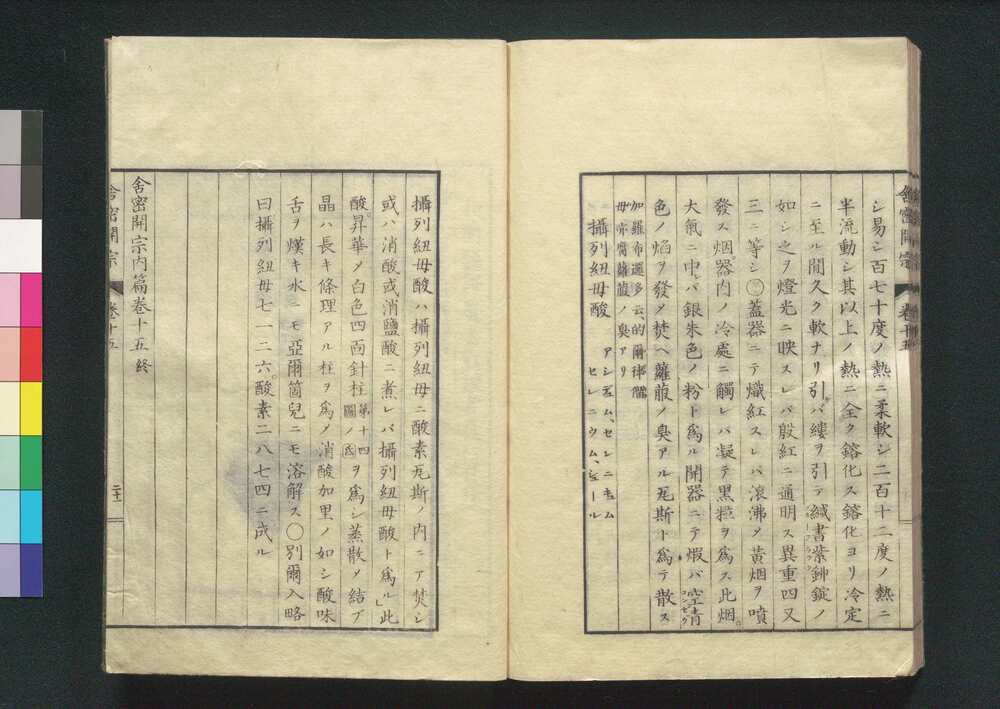 舍密開宗 卷十五
シ易シ百七十度ノ熱ニ柔軟シ二百十二度ノ熱ニ
半流動シ其以上ノ熱ニ全ク鎔化ス鎔化ヨリ冷定
ニ至ル間久ク軟ナリ引バ縷ヲ引テ緘書紫鉚錠ノ
如シ之ヲ燈光ニ映スレバ殷紅ニ通明ス異重四又
三ニ等シ〇蓋器ニテ熾紅スレバ滾沸メ黄烟ヲ噴
發ス烟器内ノ冷處ニ觸レバ凝テ黒粒ヲ爲ス此烟
大氣ニ中レバ銀朱色ノ粉ト爲ル開器ニテ煆バ空青
色ノ焰ヲ發メ焚ヘ蘿菔ノ臭アル瓦斯ト爲テ散ス
母亦腐蘿菔ノ臭アリ
攝列紐母酸 アシデュム、セレニキュム
セレニウム、シュール
攝列紐母酸ハ攝列紐母ニ酸素瓦斯ノ内ニア焚シ
或ハ消酸或消鹽酸ニ煮レバ攝列紐母酸ト爲ル此
酸昇華メ白色四面針柱第十四圖ノヲ爲シ蒸散メ結ブ
晶ハ長キ條理アル柱ヲ爲メ消酸加里ノ如シ酸味
舌ヲ熯キ水ニモ亞爾箇兒ニモ溶解ス〇別爾入略
曰攝列紐母七一二六酸素二八七四ニ成ル
舍密開宗内篇卷十五終
舍密開宗 卷十五